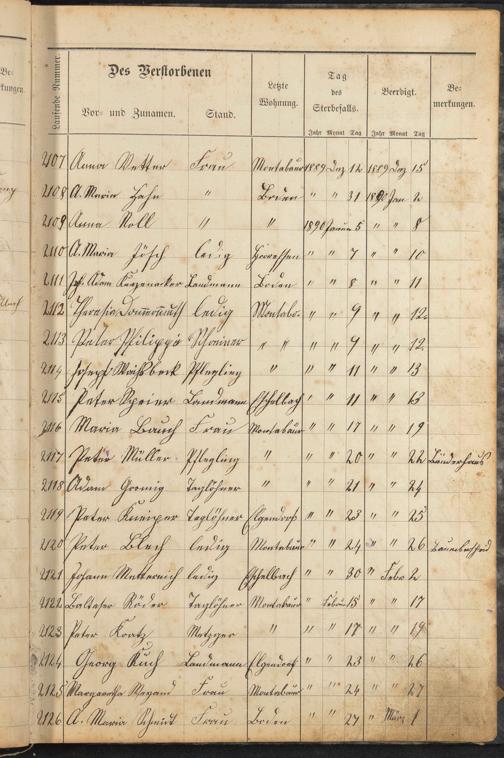 Be-
kungen.
Laufende Nummer
Des Verstorbenen
Vor- und Zunamen. Stand.
Letzte Wohnung.
Tag des Sterbefalls.
Jahr Monat Tag
Beerdigt.
Jahr Monat Tag
Be-
merkungen.
2107 Anna Vetter Frau Montabaur 1889 Dez 12 1889 Dez 15
2108 A. Maria Hahn " Boden " " 31 1890 Jan 2
2109 Anna Roll " " 1890 Januar 5 " " 8
2110 A. Maria Jösch ledig " " 7 " " 10
2111 Landmann Boden " " 8 " " 11
2112 Theresia ledig Montabr. " " 9 " " 12.
2113 Peter Philipps Schreiner " " " " 9 " " 12.
2114 Joseph Pflegling " " " 11 " " 13
2115 Peter Speier Landmann " " 11 " " 13
2116 Maria Bauch Frau Montabaur " " 17 " " 19
2117 Peter Müller Pflegling " " " 20 " " 22
2118 Adam Taglöhner " " " 21 " " 24
2119 Peter Kneiper Taglöhner Elgendorf " " 23 " " 25
2120 Peter Blech ledig Montabaur " " 24 " " 26
2121 Johann Metternich ledig Eschelbach " " 30 " Febr 2
2122 Baltaser Röder Taglöhner Montabaur " Febru 15 " " 17
2123 Peter Metzger " " " 17 " " 19
2124 Georg Landmann Elgendorf " " 23 " " 26
2125 Margaretha Frau Montabaur " " 24 " " 27
2126 A. Maria Schmidt Frau Boden " " 27 " März 1